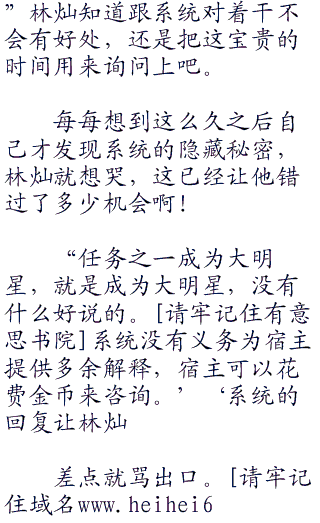 ”林灿知道跟系统对着干不
会有好处，还是把这宝贵的
时间用来询问上吧。
每每想到这么久之后自
己才发现系统的隐藏秘密，
林灿就想哭，这已经让他错
过了多少机会啊！
“任务之一成为大明
星，就是成为大明星，没有
什么好说的。[请牢记住有意
思书院]系统没有义务为宿主
提供多余解释，宿主可以花
费金币来咨询。’‘系统的
回复让林灿
差点就骂出口。[请牢记
住域名www.heihei6